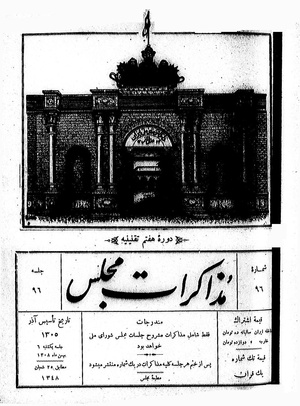 دورۀ هفتم تقنینیه
شماره
۹۶
مذاکرات مجلس
جلسه
۹۶
قیمت اشتراک
داخله ایران سالیانه ده تومان
خارجه » دوازده تومان
قیمت تک شماره
یک قران
مندرجات
فقط شامل مذاکرات مشروح جلسات مجلس شورای ملی
خواهد بود
پس از ختم هر جلسه کلیه مذاکرات در یک شماره منتشر میشود
مطبعۀ مجلس
تاریخ تأسیس آذر
۱۳۰۵
جلسه یکشنبه ۶
بهمن ماه ۱۳۰۸
مطابق ۲۵ شعبان
۱۳۴۸